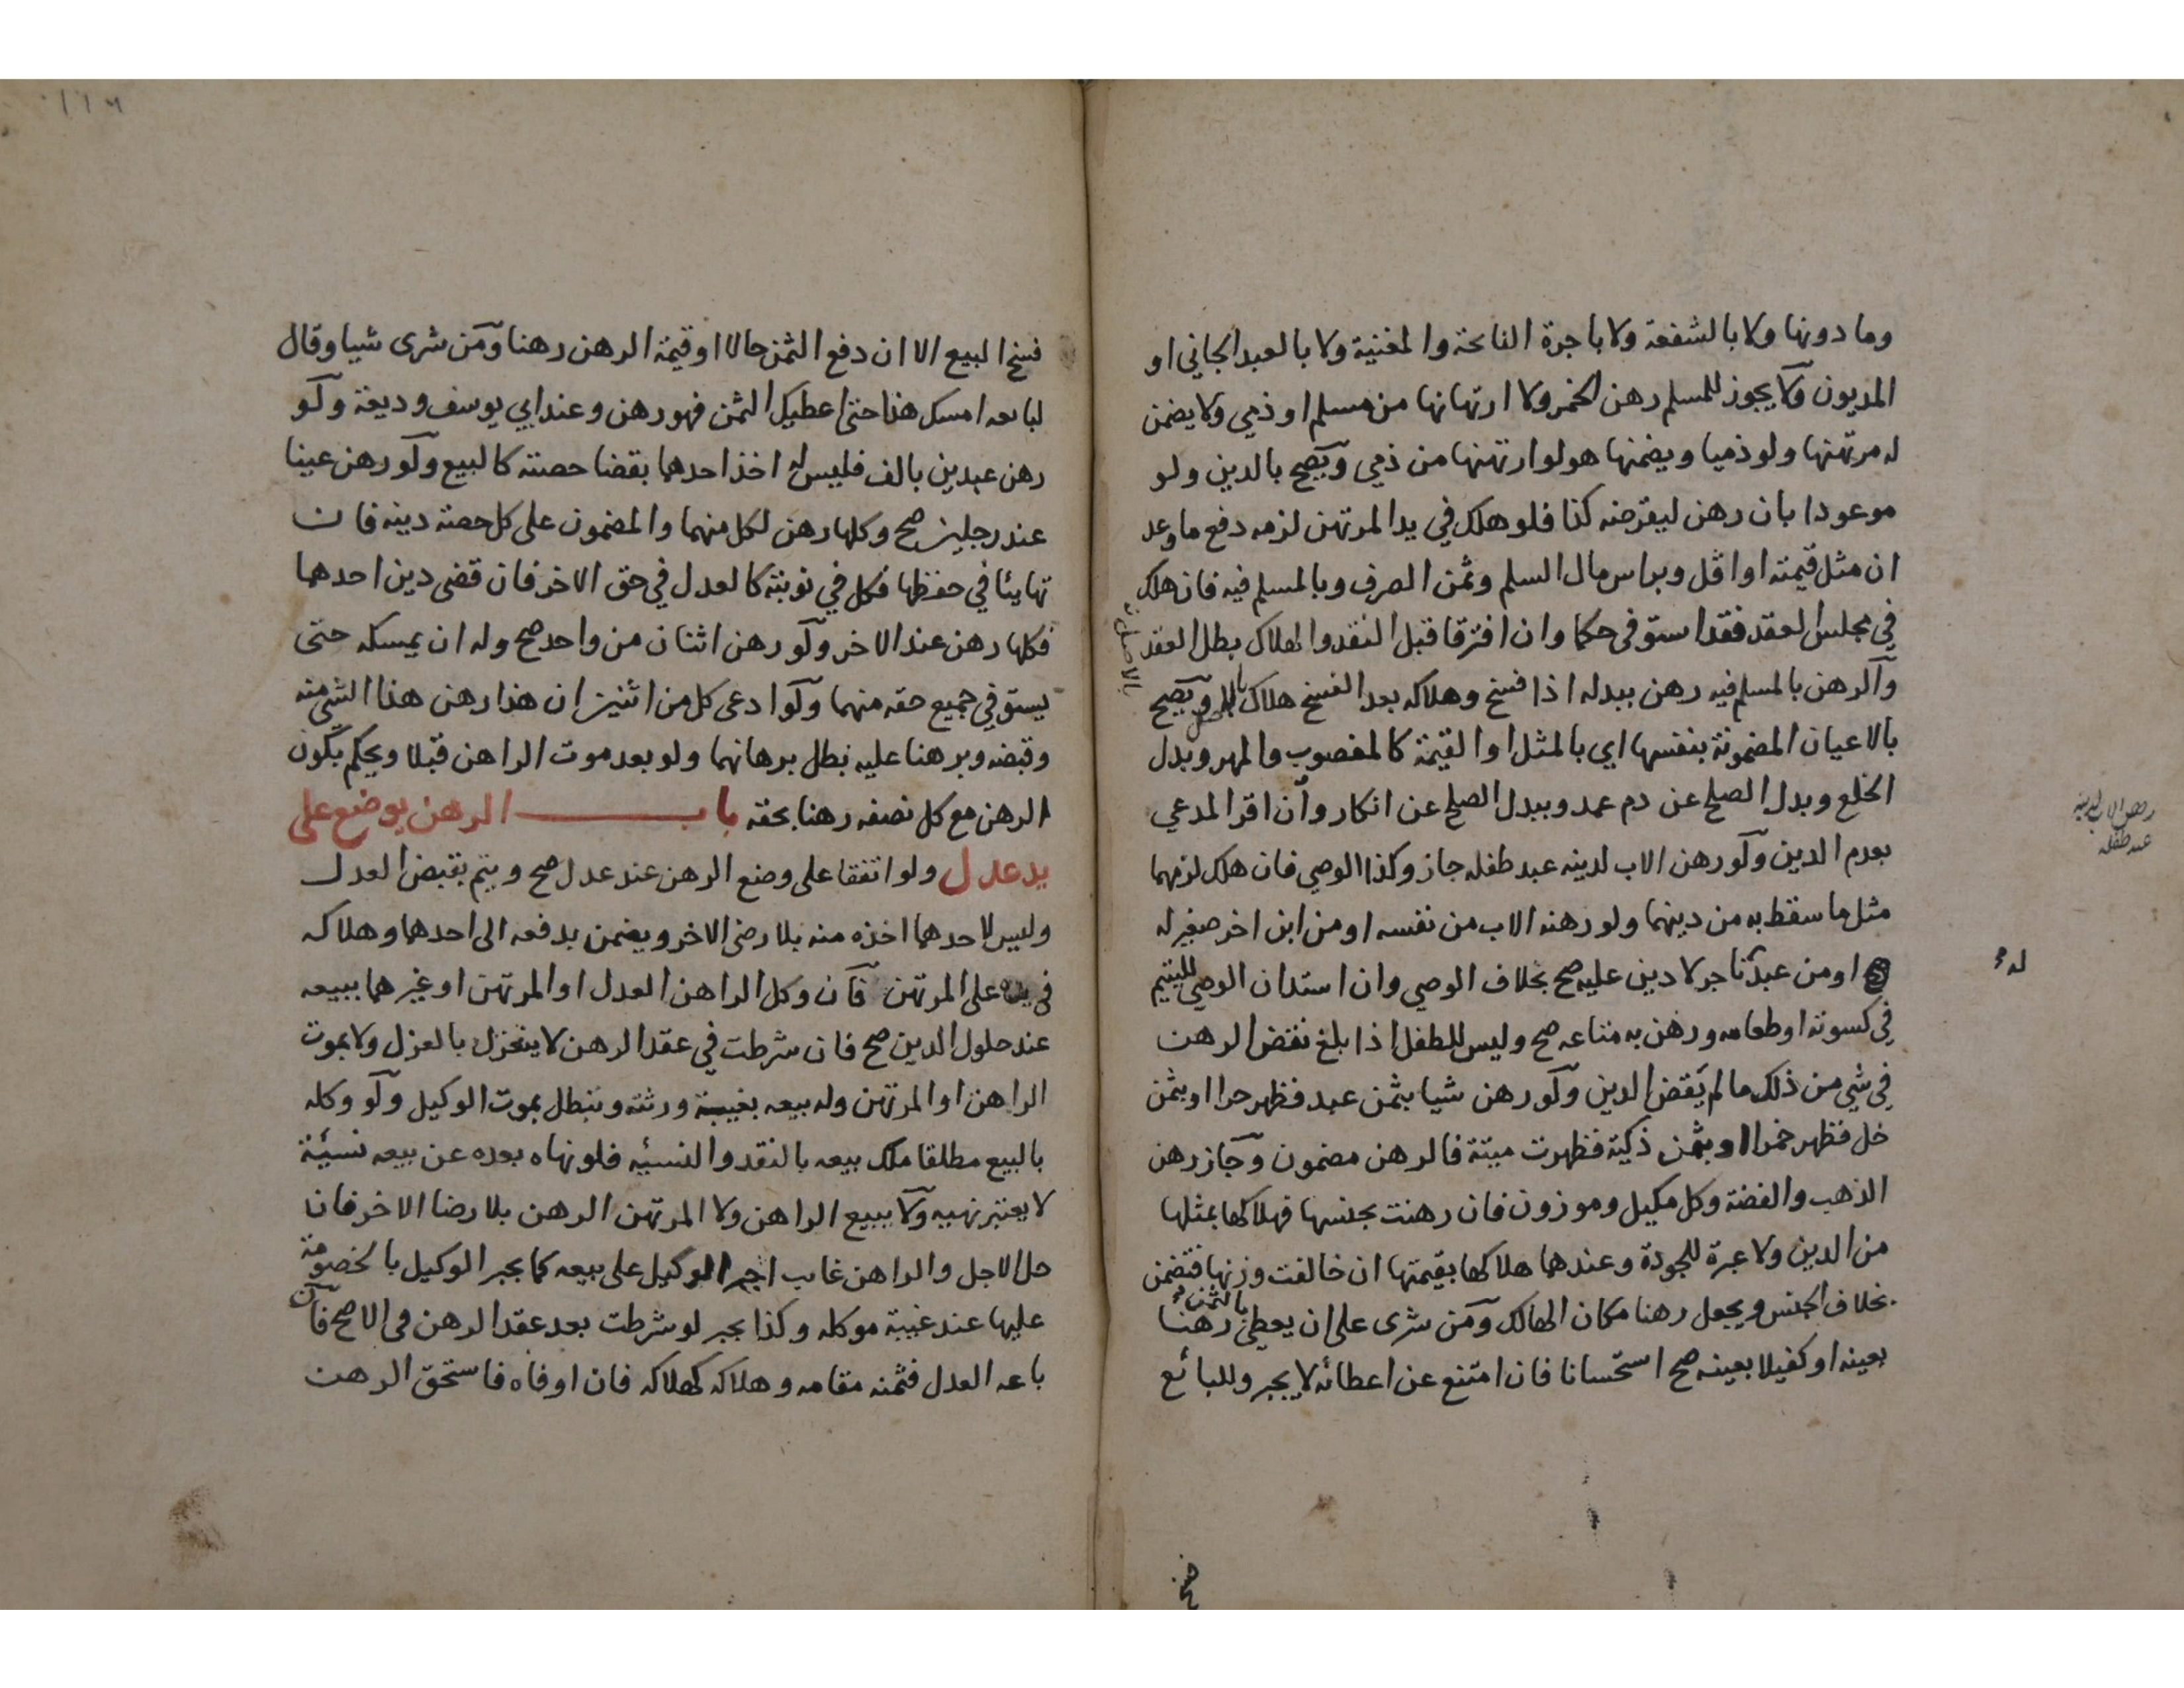 وما دونها ولا بالشفعة ولا باجرة النائحة والمغنية ولا بالعبد الجاني او
المديون ولا يجوز للمسلم رهن الخمر ولا ارتهانها من مسلم او ذمي ولا يضمن
له مرتهنها ولو ذميا ويضمنها هو لو ارتهنها من ذمي ويصح بالدين ولو
موعودا بان رهن ليقرضه كذا فلو هلك في يد المرتهن لزمه دفع ما وعد
ان مثل قيمته او اقل وبراس مال السلم وثمن الصرف وبالمسلم فيه فان هلك
في مجلس العقد فقد استوفى حكما وان افترقا قبل النقد والهلاك بطل العقد
والرهن بالمسلم فيه رهن ببدله اذا فسخ وهلاكه بعد الفسخ هلاك بالاصل ويصح
بالاعيان المضمونة بنفسها اي بالمثل او القيمة كالمغصوب والمهر وبدل
الخلع وبدل الصلح عن دم عمد وببدل الصلح عن انكار وان اقر المدعي
بعدم الدين ولو رهن الاب لدينه عبد طفله جاز وكذا الوصي فان هلك لزمهما
مثل ما سقط به من دينهما ولو رهنه الاب من نفسه او من ابن اخر صغير له
او من عبد تاجر لا دين عليه صح بخلاف الوصي وان استدان الوصي لليتيم
في كسوته او طعامه ورهن به متاعه صح وليس للطفل اذا بلغ نقض الرهن
في شي من ذلك ما لم يقض الدين ولو رهن شيا بثمن عبد فظهر حرا او بثمن
خل فظهر خمرا او بثمن ذكية فظهرت ميتة فالرهن مضمون وجاز رهن
الذهب والفضة وكل مكيل وموزون فان رهنت بجنسها فهلاكها بمثلها
من الدين ولا عبرة للجودة وعندهما هلاكها بقيمتها ان خالفت وزنها فتضمن
بخلاف الجنس ويجعل رهنا مكان الهالك ومن شرى على ان يعطي بالثمن رهنا
بعينه او كفيلا بعينه صح استحسانا فان امتنع عن اعطائه لا يجبر وللبائع
فسخ
بالاصل
رهن الاب لدينه
عبد طفله
له
١١٦
فسخ البيع الا ان دفع الثمن حالا او قيمة الرهن رهنا ومن شرى شيا وقال
لبائعه امسك هذا حتى اعطيك الثمن فهو رهن وعند ابي يوسف وديعة ولو
رهن عبدين بالف فليس له اخذ احدهما بقضا حصته كالبيع ولو رهن عينا
عند رجلين صح وكلها رهن لكل منهما والمضمون على كل حصة دينه فان
تهايئا في حفظها فكل في نوبته كالعدل في حق الاخر فان قضى دين احدهما
فكلها رهن عند الاخر ولو رهن اثنان من واحد صح وله ان يمسكه حتى
يستوفي جميع حقه منهما ولو ادعى كل من اثنين ان هذا رهن هذا الشي منه
وقبضه وبرهنا عليه بطل برهانهما ولو بعد موت الراهن قبلا ويحكم بكون
الرهن مع كل نصفه رهنا بحقه باب الرهن يوضع على
يد عدل ولو اتفقا على وضع الرهن عند عدل صح ويتم بقبض العدل
وليس لاحدهما اخذه منه بلا رضى الاخر ويضمن بدفعه الى احدهما وهلاكه
في يده على المرتهن فان وكل الراهن العدل او المرتهن او غيرهما ببيعه
عند حلول الدين صح فان شرطت في عقد الرهن لا ينعزل بالعزل ولا بموت
الراهن او المرتهن وله بيعه بغيبة ورثته وتبطل بموت الوكيل ولو وكله
بالبيع مطلقا ملك بيعه بالنقد والنسئيه فلو نهاه بعده عن بيعه نسئية
لا يعتبر نهيه ولا يبيع الراهن ولا المرتهن الرهن بلا رضا الاخر فان
حل الاجل والراهن غائب اجبر الوكيل على بيعه كما يجبر الوكيل بالخصومة
عليها عند غيبة موكله وكذا يجبر لو شرطت بعد عقد الرهن في الاصح فان
باعه العدل فثمنه مقامه وهلاكه كهلاكه فان اوفاه فاستحق الرهن